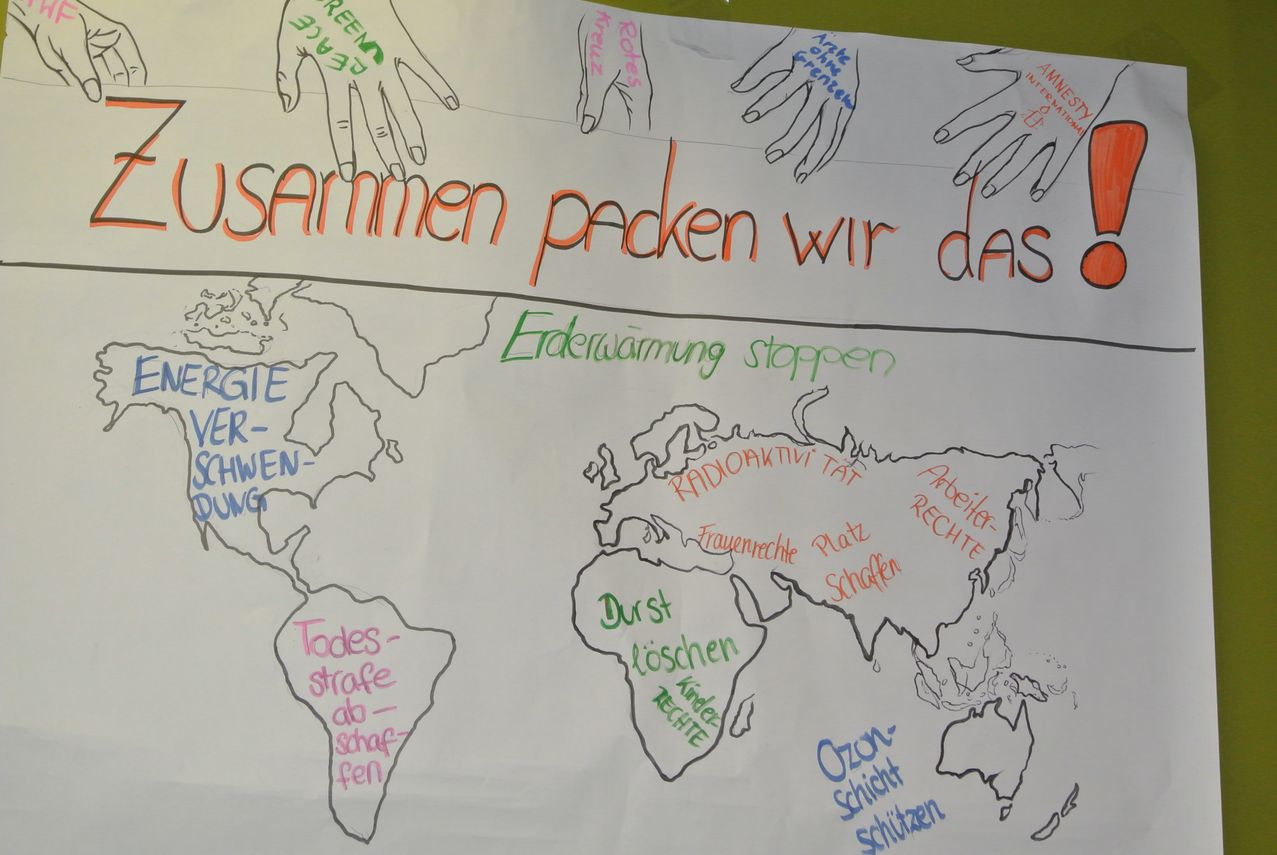 WWF
GREEN
PEACE
Rotes
Kreuz
Ärzte
ohne
Grenzen
AMNESTY
INTERNATIONAL
Zusammen packen wir das!
Erderwärmung stoppen
ENERGIE
VER-
SCHWEN-
DUNG
RADIOAKTIVITÄT
Arbeiter-
RECHTE
Frauenrechte
Platz
Schaffen
Durst
löschen
Kinder-
RECHTE
Todes-
strafe
ab-
schaf-
fen
Ozon-
schicht
schützen